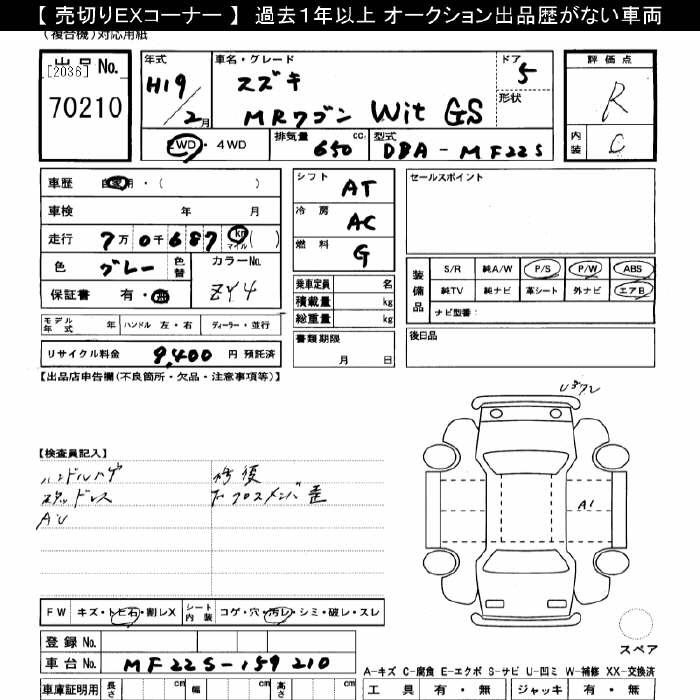 【 売切りEXコーナー 】 過去1年以上 オークション出品歴がない車両
(複合機)対応用紙
出品 No.
[2036]
70210
年式
H19/2月
車名・グレード
スズキ
MRワゴン Wit GS
ドア
5
形状
評価点
R
内装
C
2WD・4WD
排気量 650 cc.
型式 DBA-MF22S
車歴 自家用・( )
車検 年 月
走行 7万0千687 km マイル ( )
色 グレー 色替
カラーNo. ZY4
保証書 有・無
モデル年式 年 ハンドル 左・右 ディーラー・並行
リサイクル料金 9,400 円 預託済
シフト AT
冷房 AC
燃料 G
乗車定員 名
積載量 kg
総重量 kg
書類期限
月 日
セールスポイント
装備品
S/R 純A/W P/S P/W ABS
純TV 純ナビ 革シート 外ナビ エアB
ナビ型番:
後日品
【出品店申告欄(不良箇所・欠品・注意事項等)】
【検査員記入】
ハンドルハゲ
スタッドレス
AU
修復
下クロスメンバ歪
A1
FW キズ・トビ石・割レX シート内装 コゲ・穴・汚レ・シミ・破レ・スレ
スペア
登録 No.
車台 No. MF22S-159210
A-キズ C-腐食 E-エクボ S-サビ U-凹ミ W-補修 XX-交換済
車庫証明用 長さ cm 幅 cm 高さ cm
工具 有・無 ジャッキ 有・無